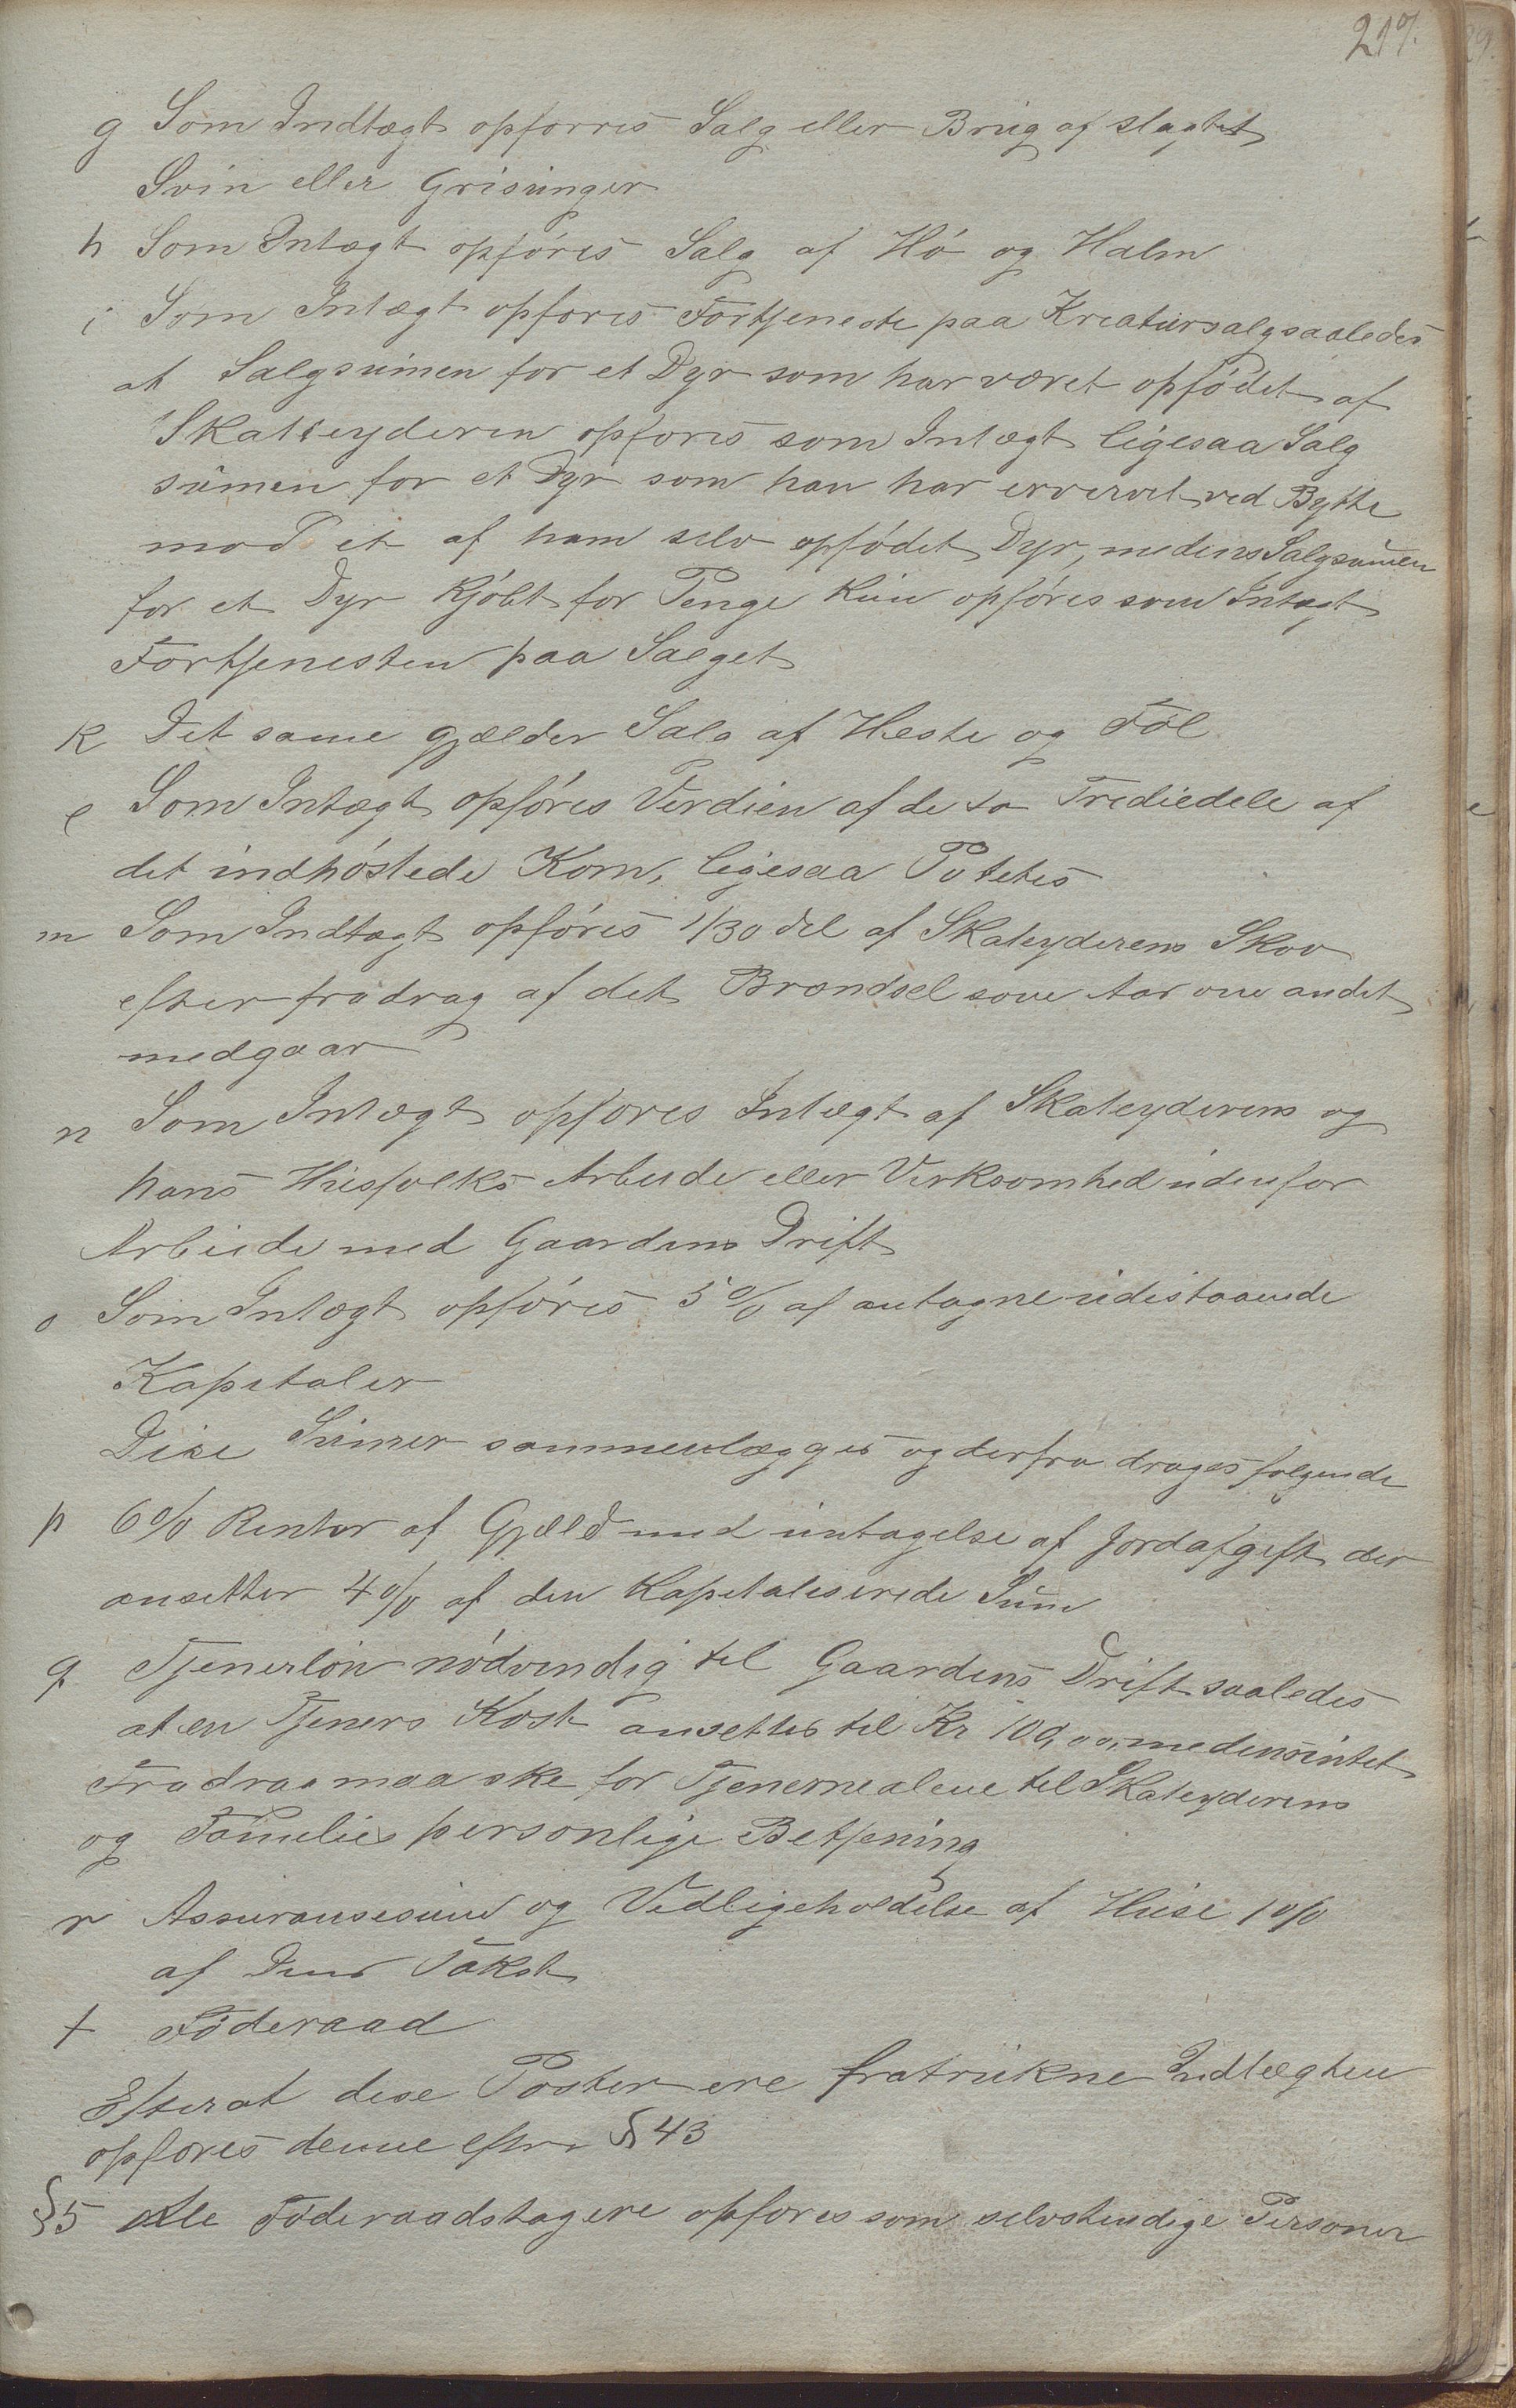 217.
g Som Indtægt opførres Salg eller Brug af slagtet
Svin eller Grisunger
h Som Intægt opføres Salg af Hø og Halm
i Som Intægt opføres Fortjeneste paa Kreatursalg saaledes
at Salgsumen for et Dyr som har været opfødet af
Skatteyderen opføres som Intægt ligesaa Salg
sumen for et Dyr som han har ervervet ved Bytte
mod et af ham selv opfødet Dyr, medens Salgsumen
for et Dyr kjøbt for Penge kun opføres som Intægt
Fortjenesten paa Salget
k Det same gjælder Salg af Heste og Føl
l Som Intægt opføres Verdien af de to Trediedele af
det indhøstede Korn, ligesaa Potetes
m Som Indtægt opføres 1/30 del af Skateyderens Skov
efter fradrag af det Brændsel som Aar om andet
medgaar
n Som Intægt opføres Intægt af Skateyderens og
hans Husfolks Arbeide eller Virksomhed udenfor
Arbeide med Gaardens Drift
o Som Intægt opføres 5% af antagne udestaaende
Kapitaler
Disse Sumer sammenlægges og derfra drages følgende
p 6% Renter af Gjæld med untagelse af Jordafgift der
ansetter 4% af den Kapitaliserede Sum
q Tjenerløn nødvendig til Gaardens Drift saaledes
at en Tjeners Kost ansettes til Kr 100,00, medens intet
Fradrag maa ske for Tjenerne alene til Skateyderens
og Families personlige Betjening
r Assuransesum og Vedligeholdelse af Huse 1%
af Deres Takst
t Føderaad
Efterat dese Poster ere fratrukne Indtægten
opføres denne efter § 43
§5 Alle Føderaadstagere opføres som selvstendige Personer